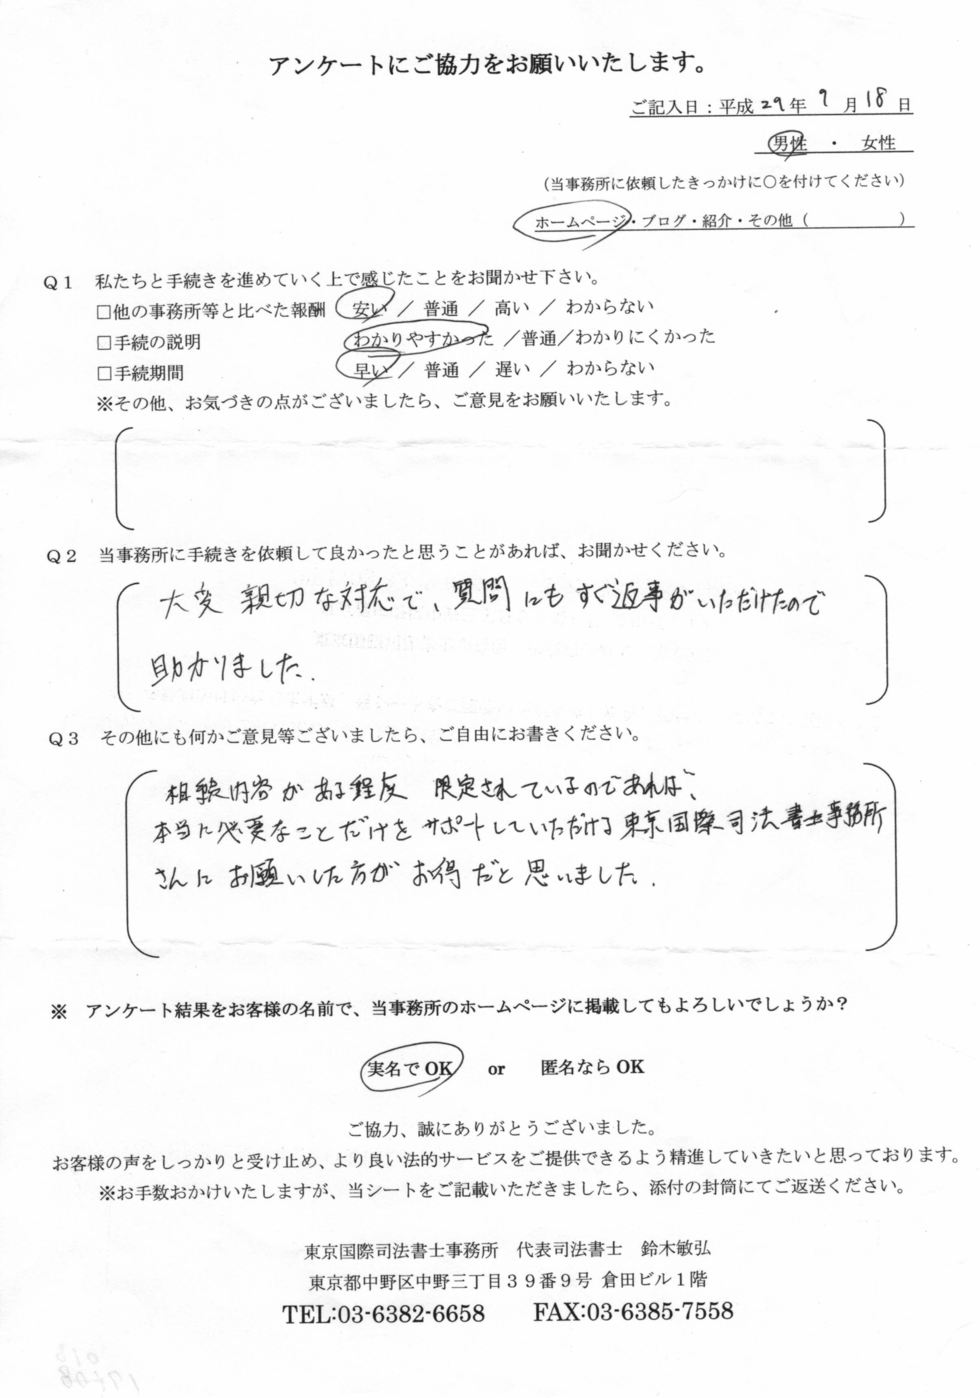 アンケートにご協力をお願いいたします。
ご記入日：平成29年9月18日
男性　・　女性
（当事務所に依頼したきっかけに○を付けてください）
ホームページ・ブログ・紹介・その他（　　　　　　）
Q1　私たちと手続きを進めていく上で感じたことをお聞かせ下さい。
□他の事務所等と比べた報酬　安い ／ 普通 ／ 高い ／ わからない
□手続の説明　わかりやすかった ／普通／わかりにくかった
□手続期間　早い ／ 普通 ／ 遅い ／ わからない
※その他、お気づきの点がございましたら、ご意見をお願いいたします。
Q2　当事務所に手続きを依頼して良かったと思うことがあれば、お聞かせください。
大変 親切な対応で、質問にもすぐ返事がいただけたので
助かりました.
Q3　その他にも何かご意見等ございましたら、ご自由にお書きください。
相続内容がある程度 限定されているのであれば、
本当に必要なことだけをサポートしていただける東京国際司法書士事務所
さんにお願いした方がお得だと思いました.
※　アンケート結果をお客様の名前で、当事務所のホームページに掲載してもよろしいでしょうか？
実名でOK　or　匿名ならOK
ご協力、誠にありがとうございました。
お客様の声をしっかりと受け止め、より良い法的サービスをご提供できるよう精進していきたいと思っております。
※お手数おかけいたしますが、当シートをご記載いただきましたら、添付の封筒にてご返送ください。
東京国際司法書士事務所　代表司法書士　鈴木敏弘
東京都中野区中野三丁目39番9号 倉田ビル1階
TEL:03-6382-6658　FAX:03-6385-7558